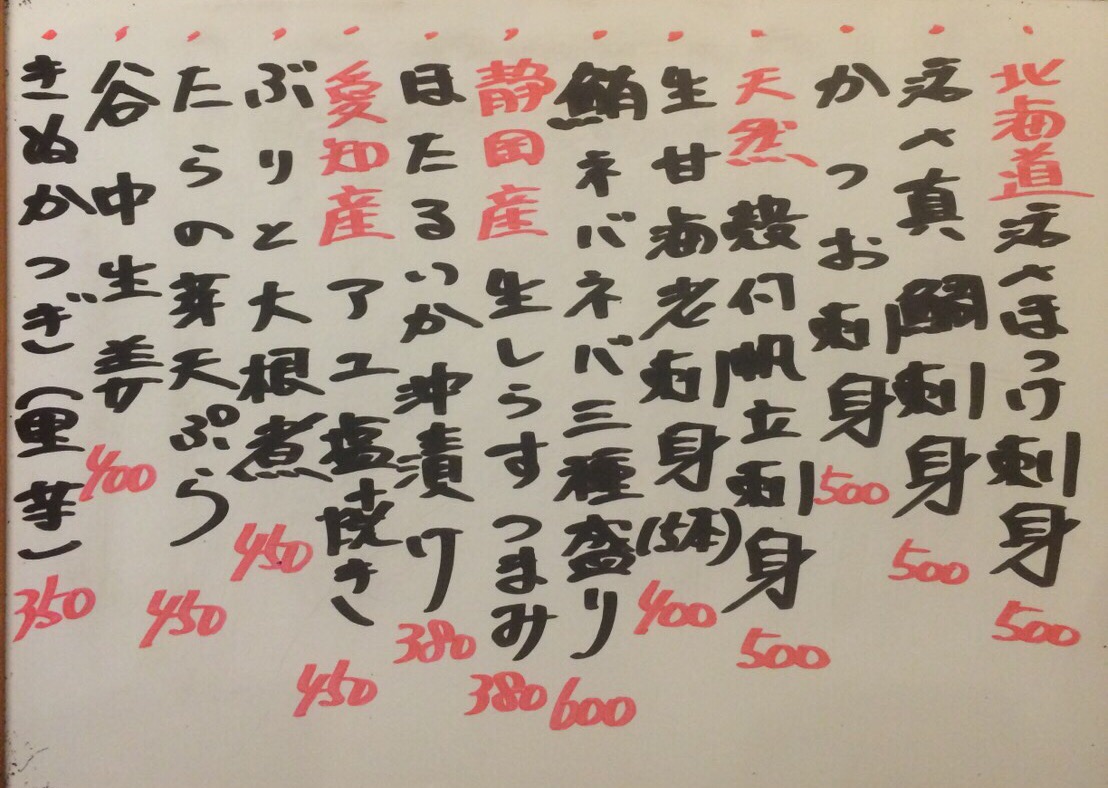 北海道活〆ほっけ刺身 500
活〆真鯛刺身 500
かつお刺身 500
天然殻付帆立刺身 500
生甘海老刺身(5本) 400
鮪ネバネバ三種盛り 600
静岡産生しらすつまみ 380
ほたるいか沖漬け 380
愛知産アユ塩焼き 450
ぶりと大根煮 450
たらの芽天ぷら 450
谷中生姜 400
きぬかつぎ(里芋) 350